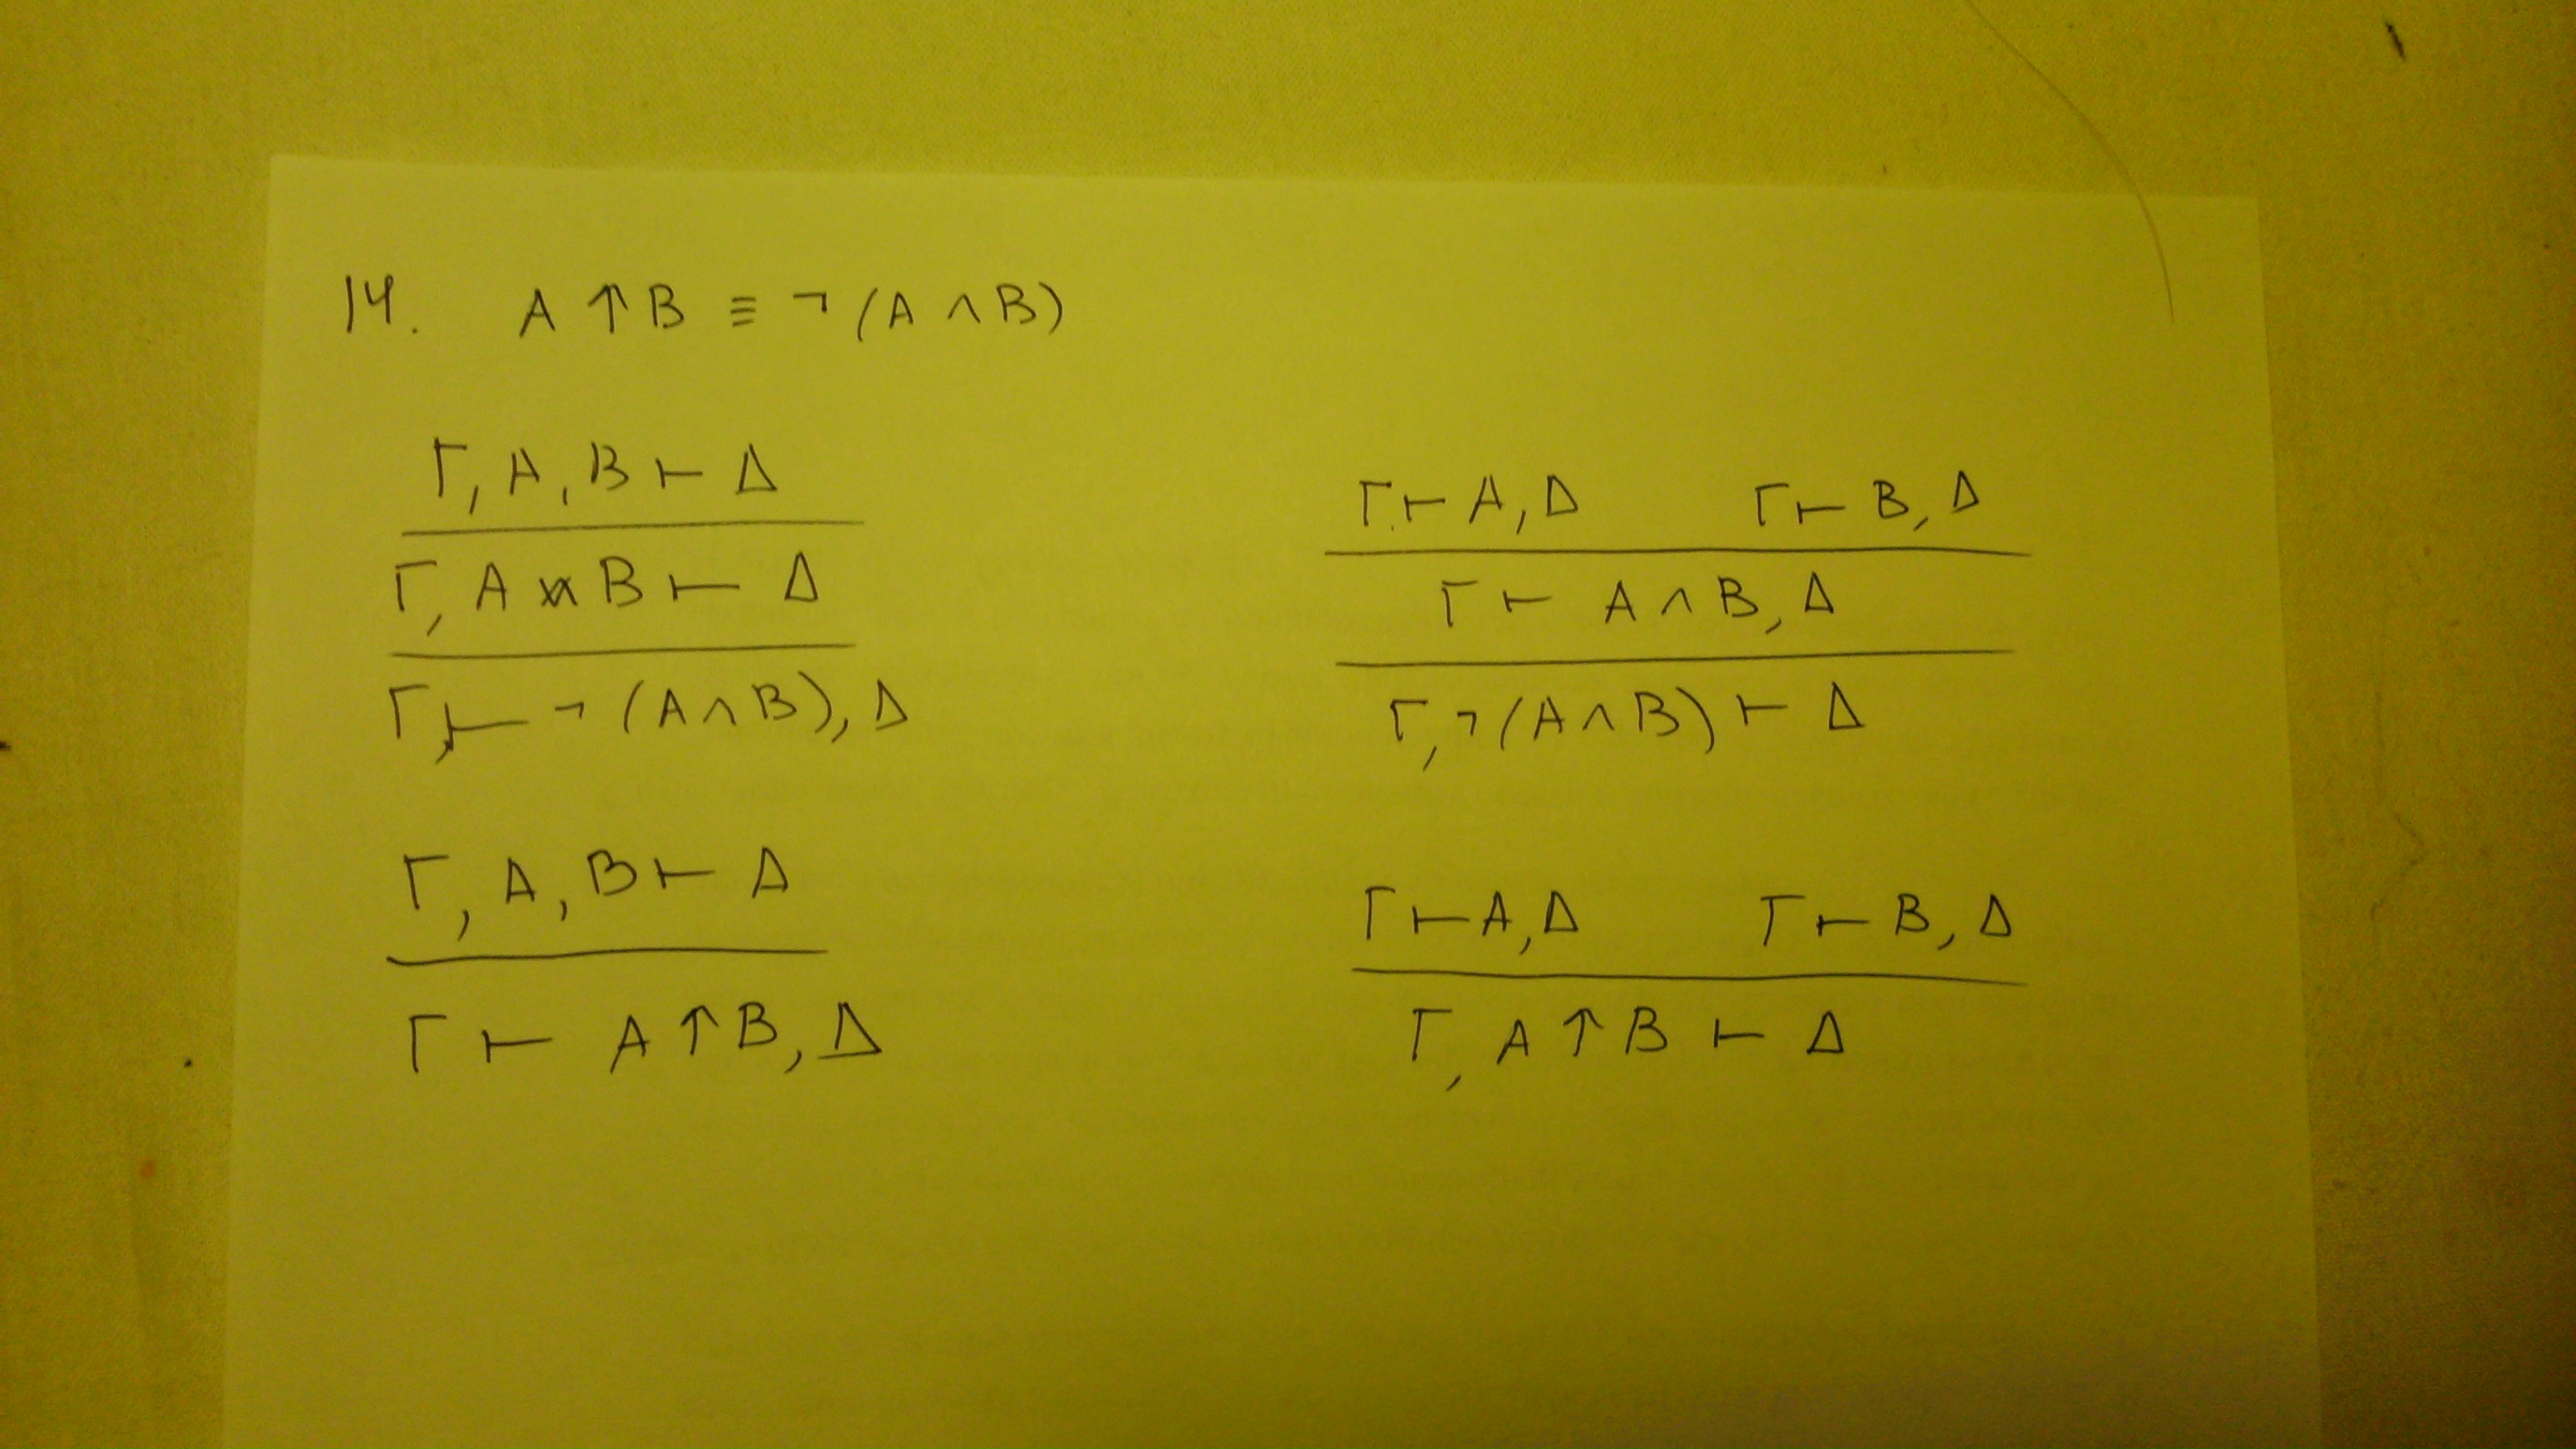 14. A ↑ B ≡ ¬ (A ∧ B)
Γ, A, B ⊢ Δ
Γ, A ∧ B ⊢ Δ
Γ ⊢ ¬ (A ∧ B), Δ
Γ ⊢ A, Δ Γ ⊢ B, Δ
Γ ⊢ A ∧ B, Δ
Γ, ¬ (A ∧ B) ⊢ Δ
Γ, A, B ⊢ Δ
Γ ⊢ A ↑ B, Δ
Γ ⊢ A, Δ Γ ⊢ B, Δ
Γ, A ↑ B ⊢ Δ